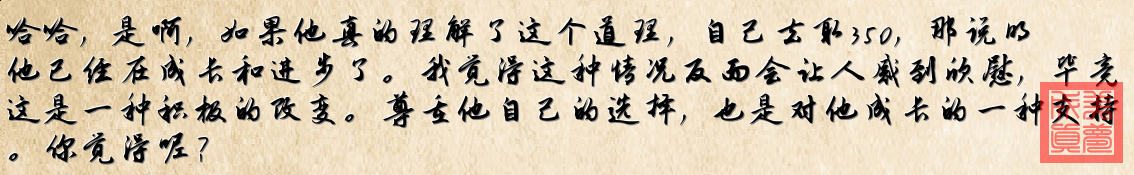 哈哈，是啊，如果他真的理解了这个道理，自己去取350，那说明
他已经在成长和进步了。我觉得这种情况反而会让人感到欣慰，毕竟
这是一种积极的改变。尊重他自己的选择，也是对他成长的一种支持
。你觉得呢？